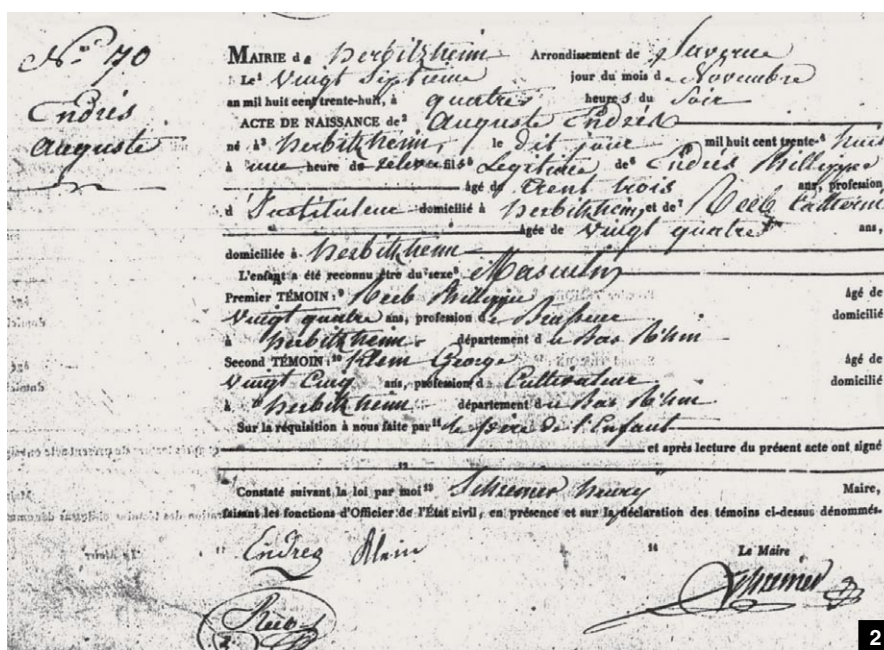 N.º 70
Endrés
Auguste
MAIRIE de herbitzheim Arrondissement de Saverne
Le¹ Vingt Septieme jour du mois de Novembre
an mil huit cent trente-huit, à quatre heures du Soir
ACTE DE NAISSANCE de² Auguste Endrés
né à³ herbitzheim, le dit jour mil huit cent trente-⁴ huit
à une heure de relevée fils⁵ Légitime de⁶ Endrés Philippe
âgé de trent trois ans, profession
d'Instituteur domicilié à herbitzheim, et de⁷ Reeb Catherine
âgée de vingt quatre ans,
domiciliée à herbitzheim
L'enfant a été reconnu être du sexe⁸ Masculin
Premier TÉMOIN :⁹ Reeb Philippe âgé de
Vingt quatre ans, profession de Brasseur domicilié
à herbitzheim département du Bas Rhin
Second TÉMOIN :¹⁰ Klein George âgé de
Vingt Cinq ans, profession de Cultivateur domicilié
à herbitzheim département du Bas Rhin
Sur la réquisition à nous faite par¹¹ le père de l'Enfant
et après lecture du présent acte ont signé
12
Constaté suivant la loi par moi¹³ Schremer henry Maire,
faisant les fonctions d'Officier de l'État civil, en présence et sur la déclaration des témoins ci-dessus dénommés.
Endres Klein 14 Le Maire
Schremer
Reeb
2